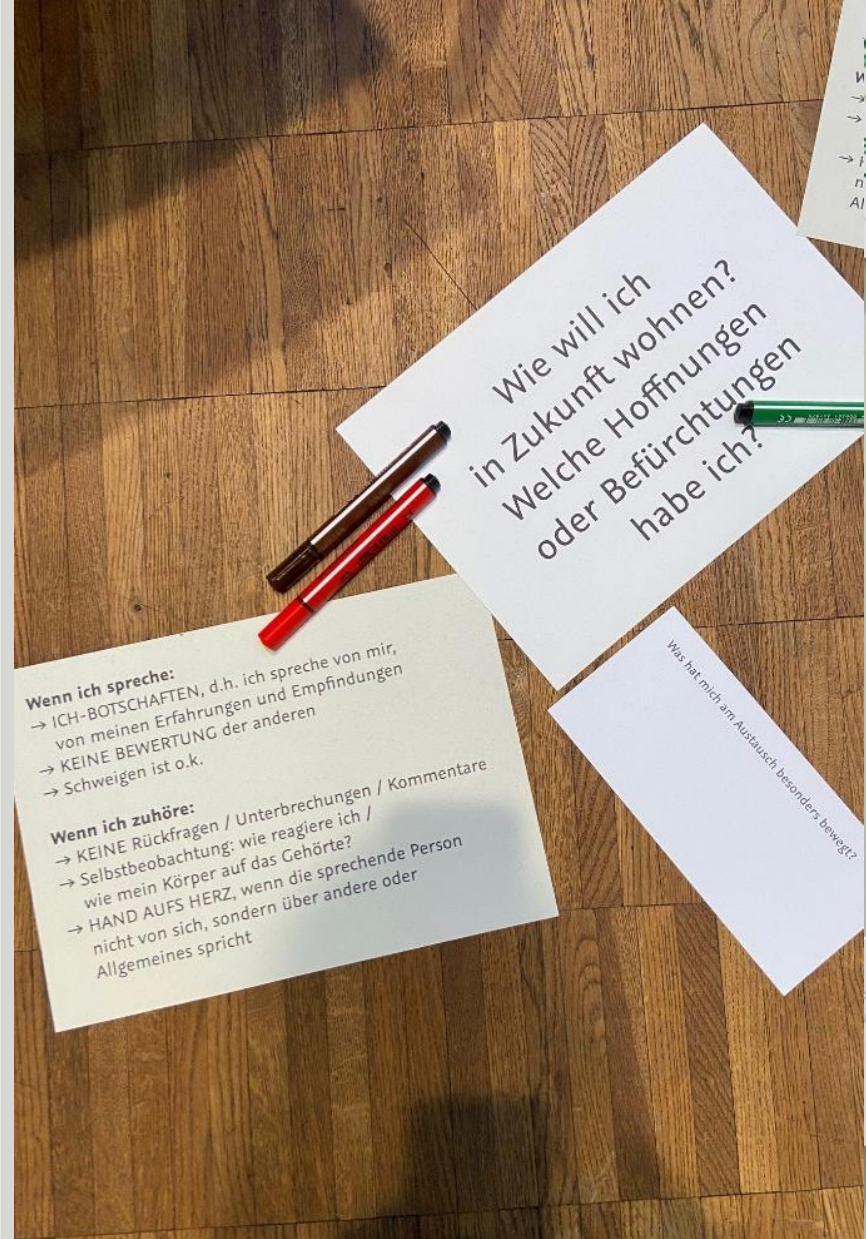 Wie will ich
in Zukunft wohnen?
Welche Hoffnungen
oder Befürchtungen
habe ich?
Wenn ich spreche:
→ ICH-BOTSCHAFTEN, d.h. ich spreche von mir,
von meinen Erfahrungen und Empfindungen
→ KEINE BEWERTUNG der anderen
→ Schweigen ist o.k.
Wenn ich zuhöre:
→ KEINE Rückfragen / Unterbrechungen / Kommentare
→ Selbstbeobachtung: wie reagiere ich /
wie mein Körper auf das Gehörte?
→ HAND AUFS HERZ, wenn die sprechende Person
nicht von sich, sondern über andere oder
Allgemeines spricht
Was hat mich am Austausch besonders bewegt?